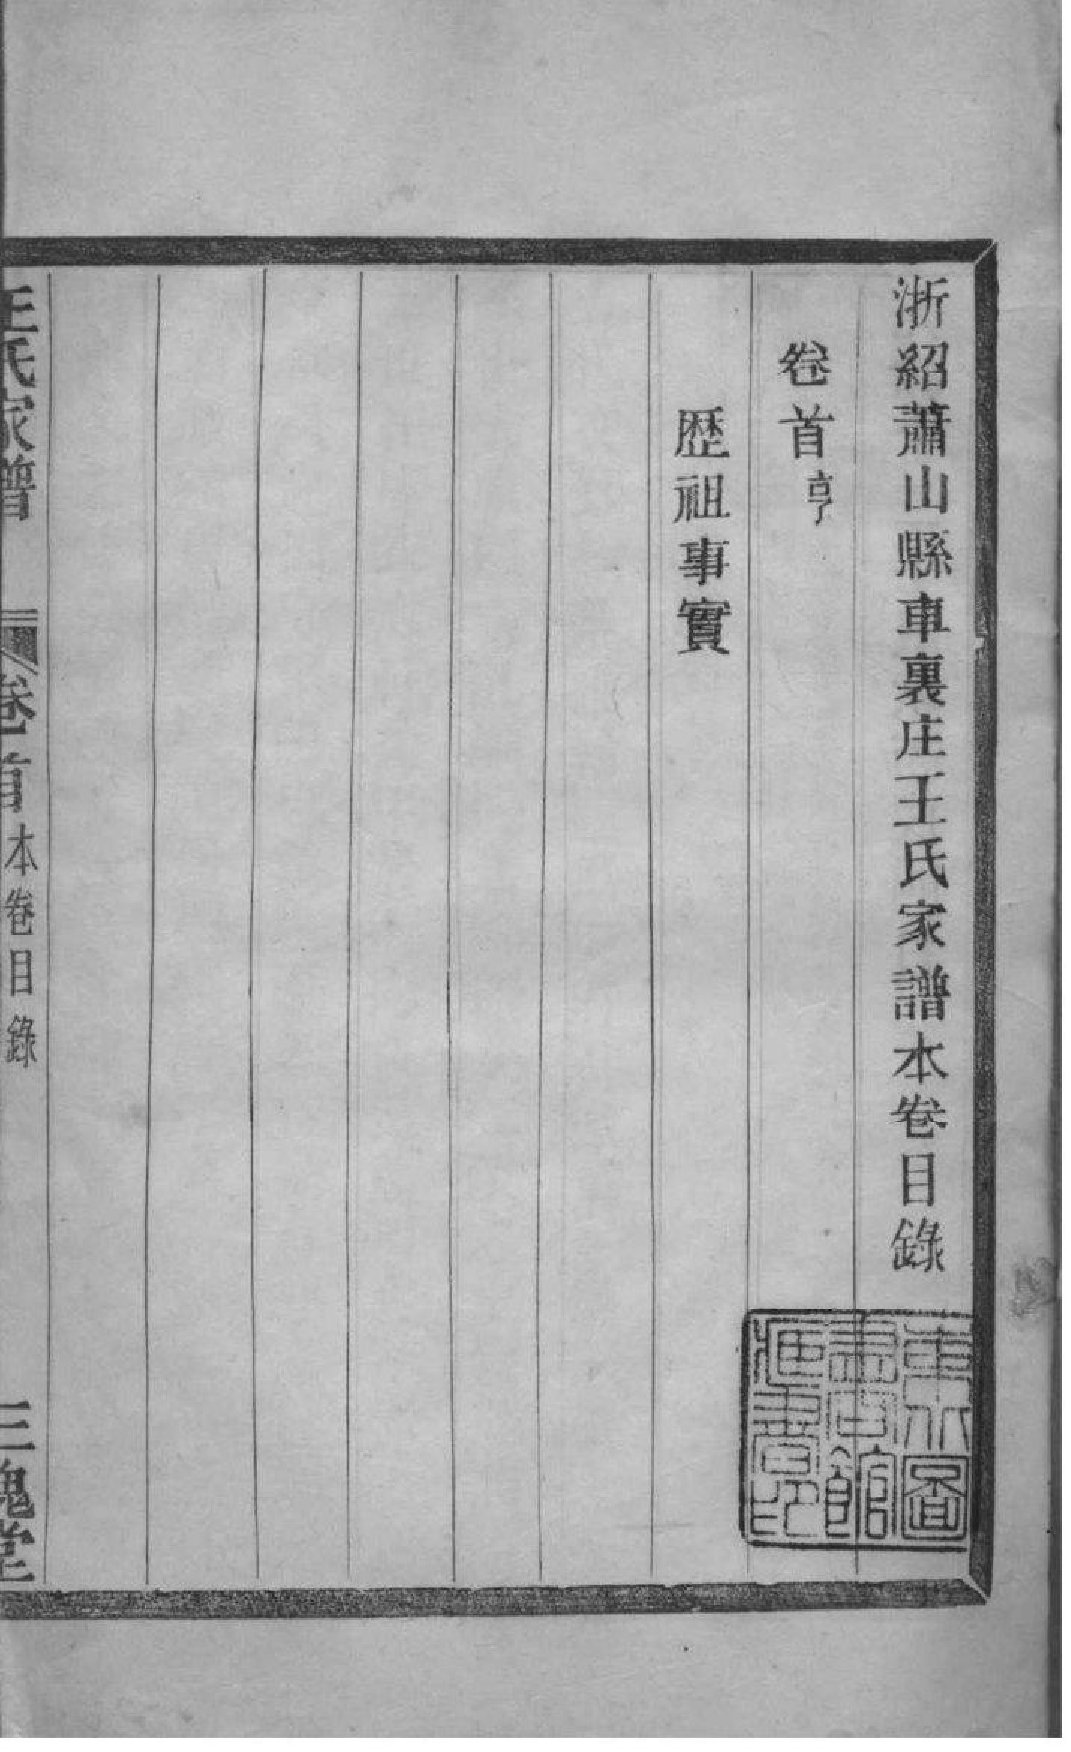 浙紹蕭山縣車裏庄王氏家譜本卷目錄
卷首亨
歷祖事實
王氏家譜
卷首本卷目錄
三槐堂
東方圖
書館